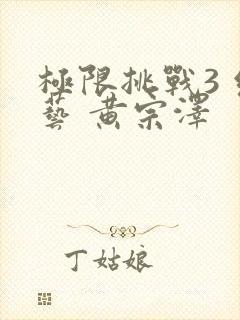 極限挑戰3
藝 黄宗澤
丁姑娘